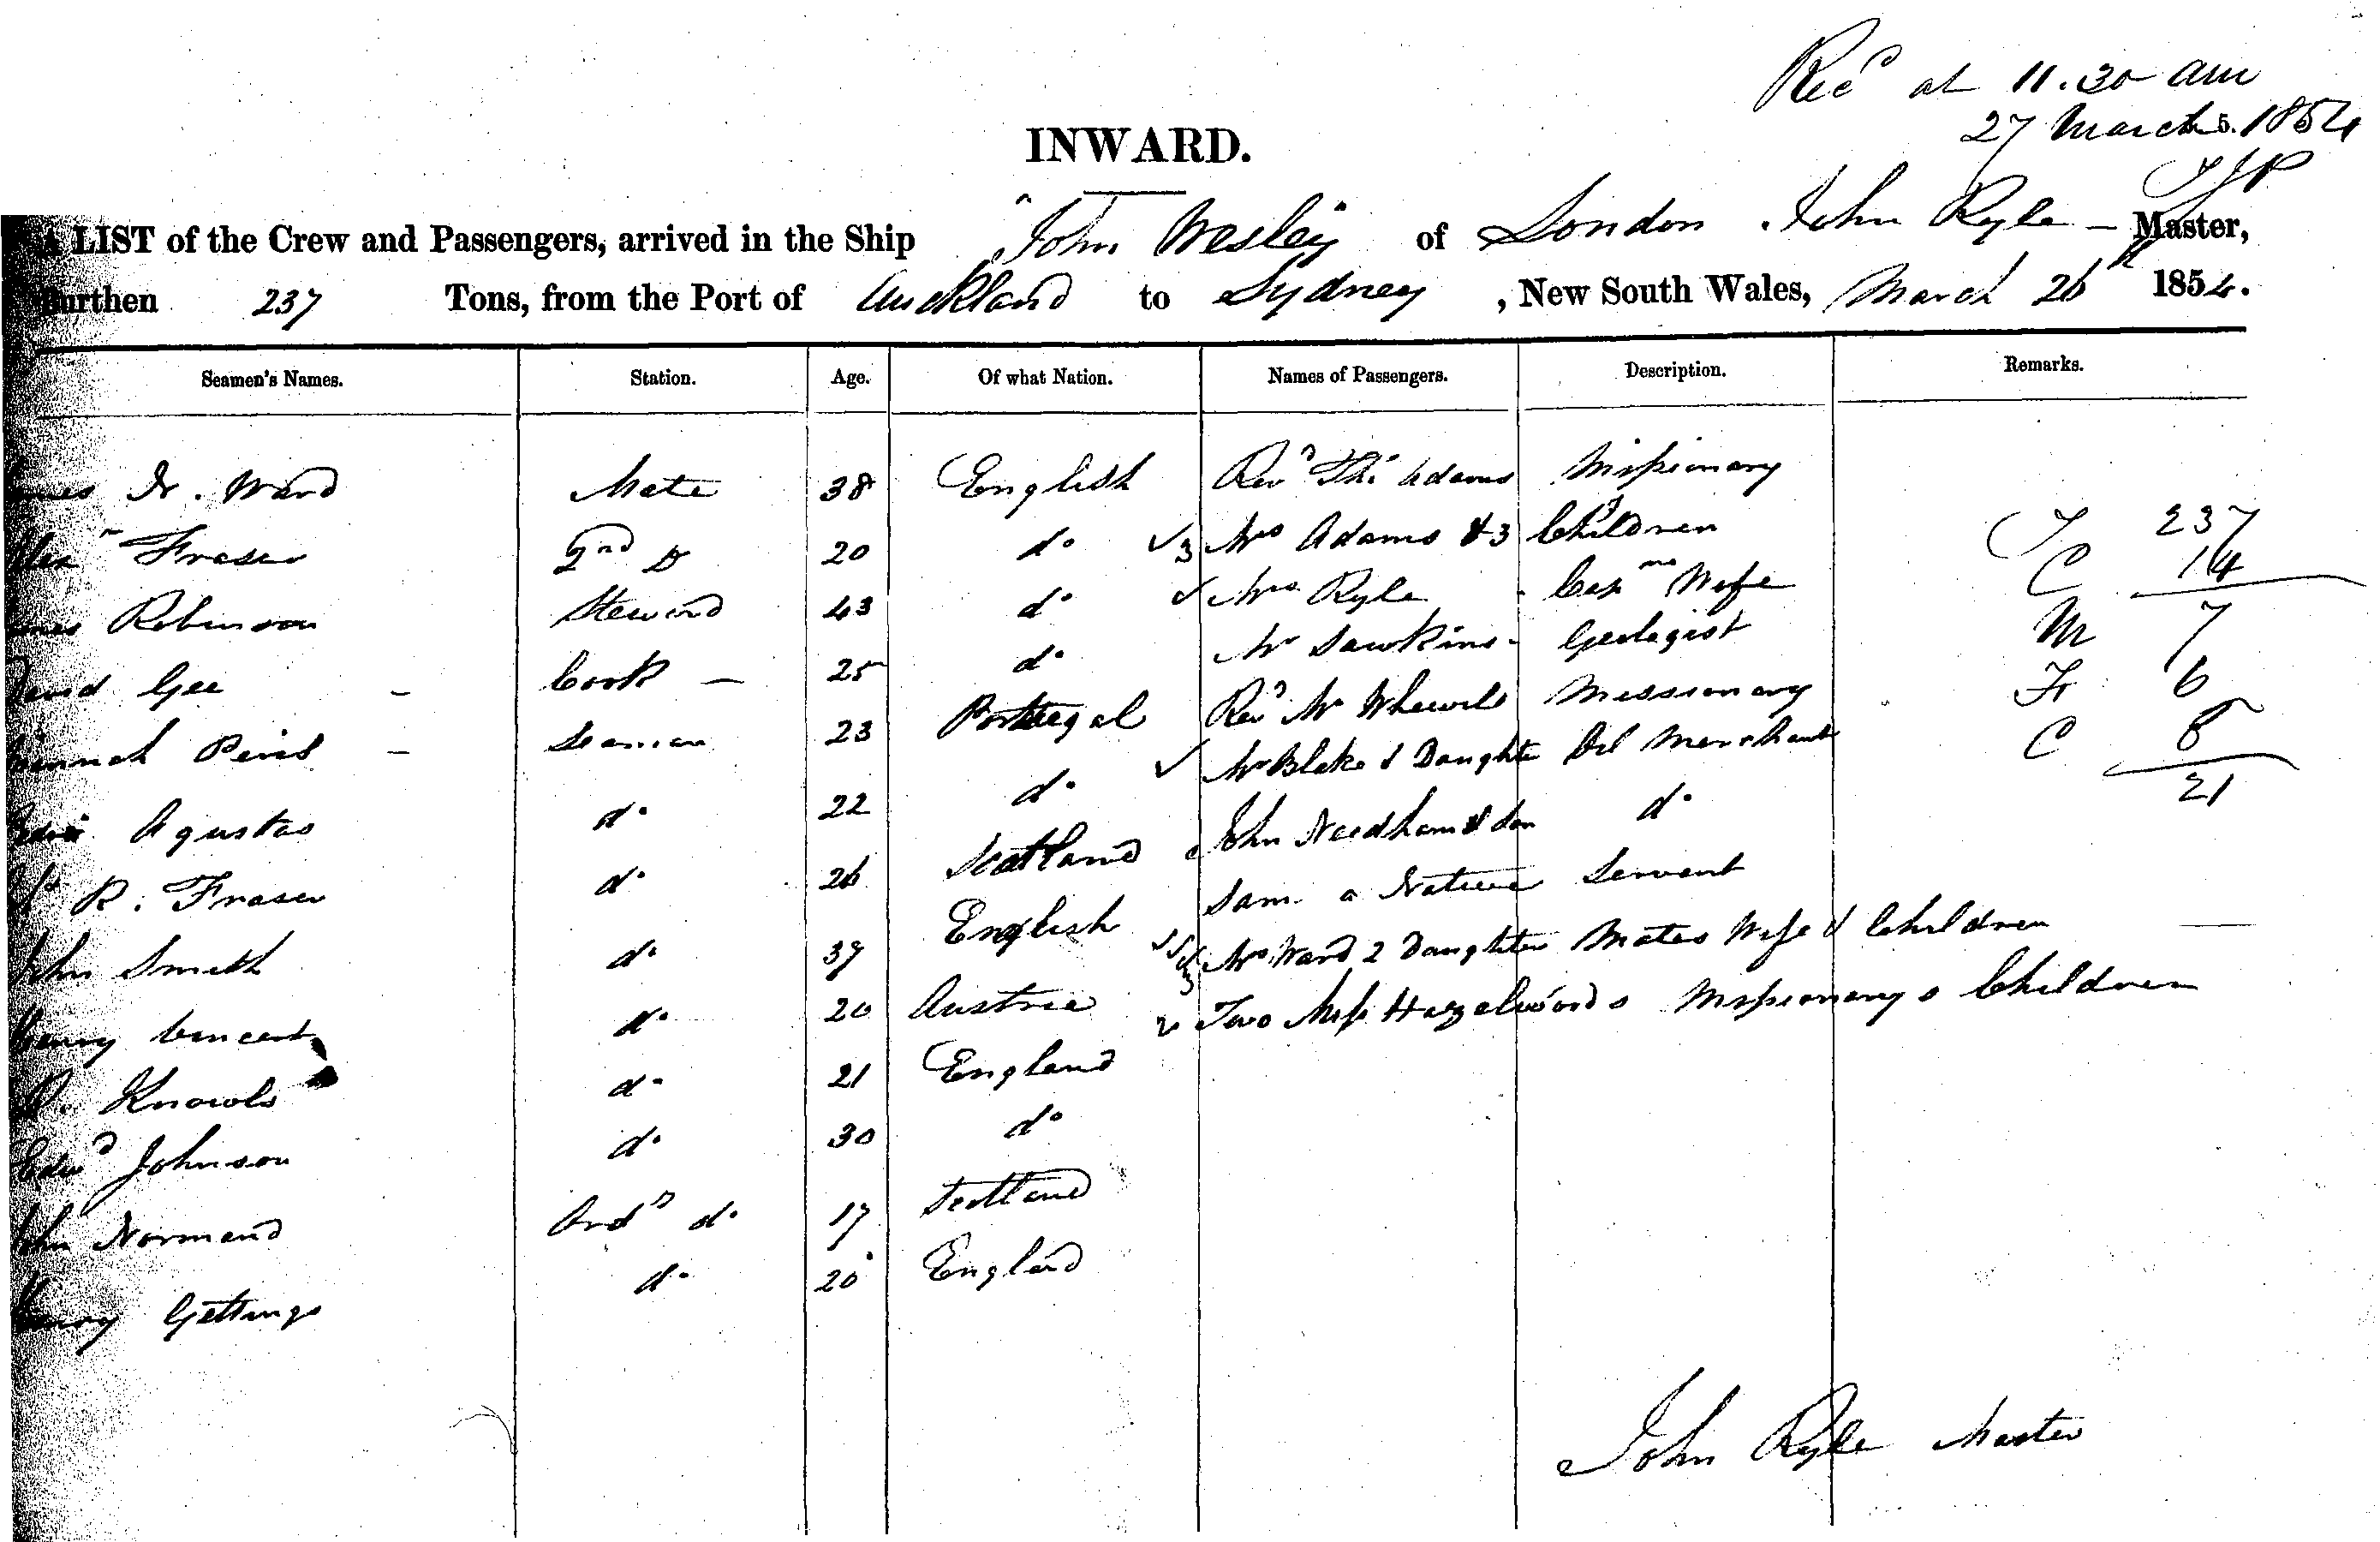 Recd at 11.30 am
27 March 5. 1854
INWARD.
A LIST of the Crew and Passengers, arrived in the Ship "John Wesley of London John Ryle – Master,
Burthen 237 Tons, from the Port of Auckland to Sydney, New South Wales, March 26th 1854.
Seamen's Names. Station. Age. Of what Nation. Names of Passengers. Description. Remarks.
Ward Mate 38 English Revd Thos Adams Missionary
Fraser 2nd Do 20 do 3 Mrs Adams & 3 Children T 237
Robinson Steward 43 do Mrs Ryle Wife C 14
David Gee – Cook – 25 do Mr Dawkins – Geologist M 7
Peris – Seaman 23 Portugal Revd Mr Missionary F 6
Agustas do 22 do Mr Blake & Daughter Oil Merchant C 8
R. Fraser do 26 Scotland John Needham & Son do 21
John Smith do 37 English Sam a Native Servant
Henry Vincent do 20 Austria Mrs Ward 2 Daughters Mates Wife & Children
Knowls do 21 England 2 Two Miss Hazelwoods Missionarys Children
Edwd Johnson do 30 do
John Normand Ordy do 17 Scotland
Henry Gettings do 20 England
John Ryle Master